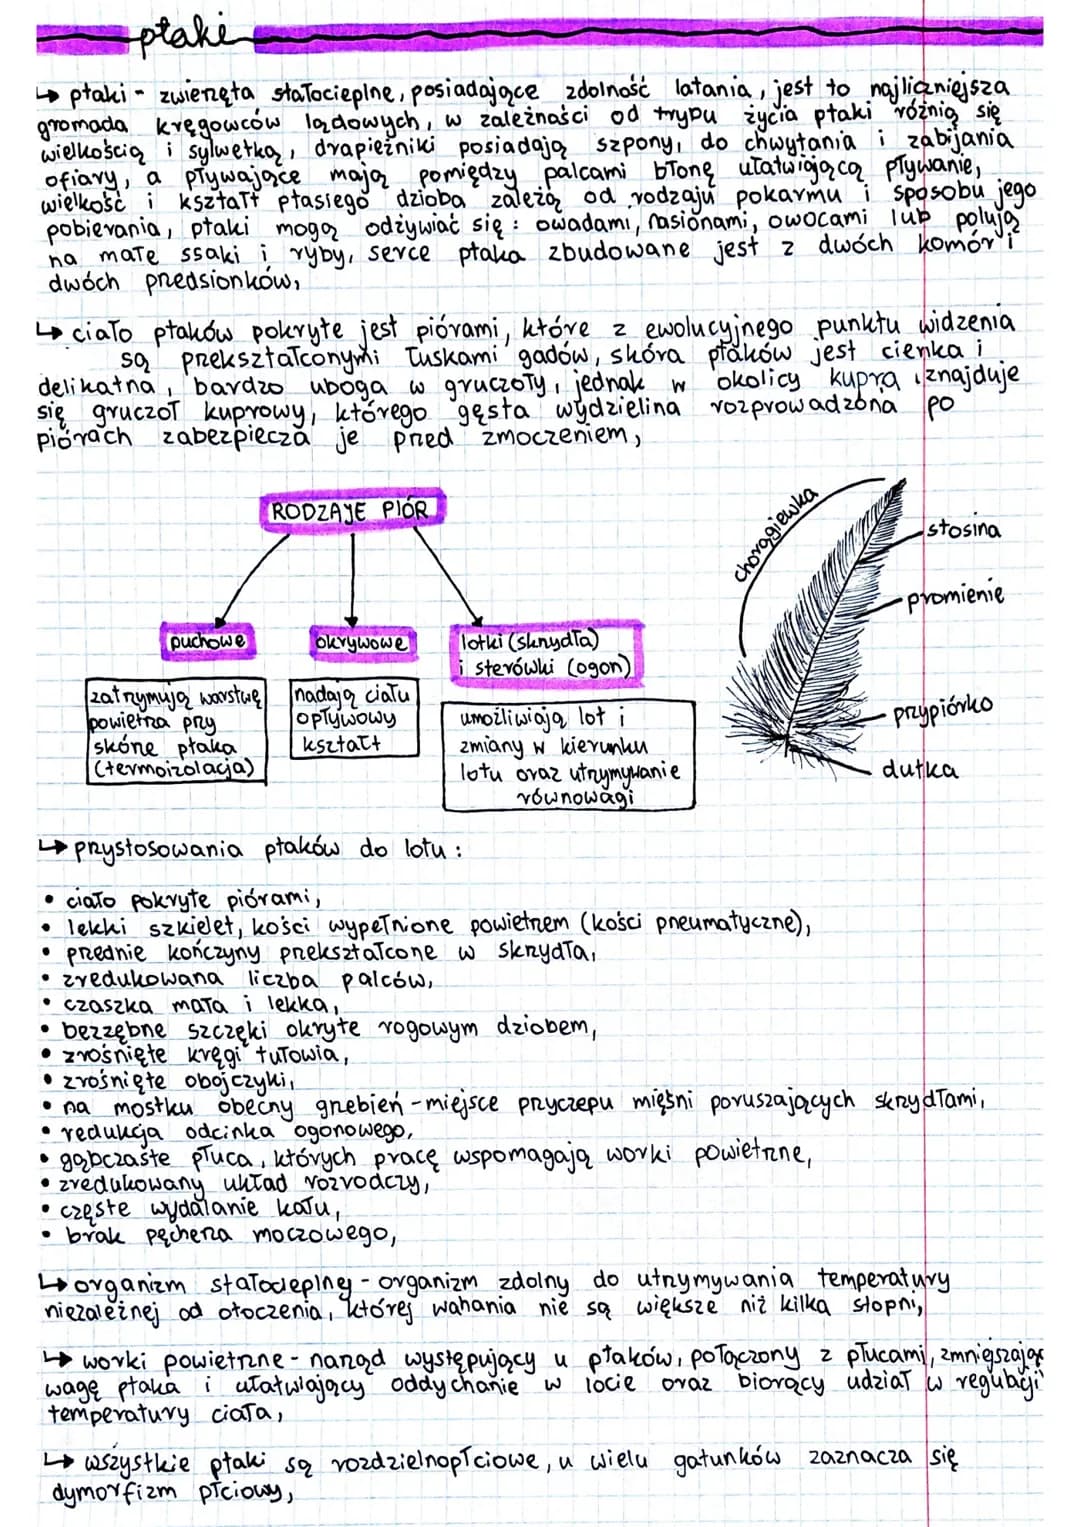 ptaki
↳ ptaki - zwierzęta stałocieplne, posiadające zdolność latania, jest to najliczniejsza
gromada kręgowców lądowych, w zależności od trybu życia ptaki różnią się
wielkością i sylwetką, drapieżniki posiadają szpony, do chwytania i zabijania
ofiary, a pływające mają pomiędzy palcami błonę ułatwiającą pływanie,
wielkość i kształt ptasiego dzioba zależą od rodzaju pokarmu i sposobu jego
pobierania, ptaki mogą odżywiać się: owadami, nasionami, owocami lub polują
na małe ssaki i ryby, serce ptaka zbudowane jest z dwóch komór i
dwóch przedsionków,
↳ ciało ptaków pokryte jest piórami, które z ewolucyjnego punktu widzenia
są przekształconymi łuskami gadów, skóra ptaków jest cienka i
delikatna, bardzo uboga w gruczoły, jednak w okolicy kupra znajduje
się gruczoł kuprowy, którego gęsta wydzielina rozprowadzona po
piórach zabezpiecza je przed zmoczeniem,
RODZAJE PIÓR
puchowe
okrywowe
lotki (skrzydła)
i sterówki (ogon)
zatrzymują warstwę
powietrza przy
skórze ptaka
(termoizolacja)
nadają ciału
opływowy
kształt
umożliwiają lot i
zmiany w kierunku
lotu oraz utrzymywanie
równowagi
chorągiewka
stosina
promienie
przypiórko
dutka
↳ przystosowania ptaków do lotu:
• ciało pokryte piórami,
• lekki szkielet, kości wypełnione powietrzem (kości pneumatyczne),
• przednie kończyny przekształcone w skrzydła,
• zredukowana liczba palców,
• czaszka mała i lekka,
• bezzębne szczęki okryte rogowym dziobem,
• zrośnięte kręgi tułowia,
• zrośnięte obojczyki,
• na mostku obecny grzebień - miejsce przyczepu mięśni poruszających skrzydłami,
• redukcja odcinka ogonowego,
• gąbczaste płuca, których pracę wspomagają worki powietrzne,
• zredukowany układ rozrodczy,
• częste wydalanie kału,
• brak pęcherza moczowego,
↳ organizm stałocieplney - organizm zdolny do utrzymywania temperatury
niezależnej od otoczenia, której wahania nie są większe niż kilka stopni,
↳ worki powietrzne - narząd występujący u ptaków, połączony z płucami, zmniejszając
wagę ptaka i ułatwiający oddychanie w locie oraz biorący udział w regulacji
temperatury ciała,
↳ wszystkie ptaki są rozdzielnopłciowe, u wielu gatunków zaznacza się
dymorfizm płciowy,